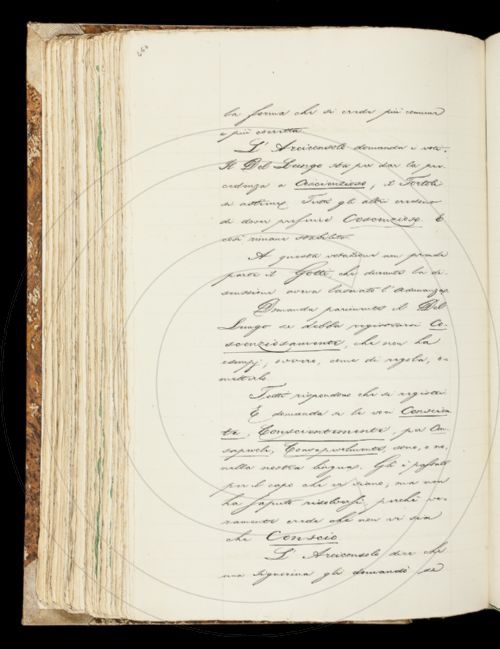 la forma che si crede più comune
e più corretta.
L'Arciconsolo domanda i voti.
Il Del Lungo sta per dar la pre-
cedenza a Coscienzioso, il Tortoli
si astiene. Tutti gli altri credono
di dover preferire Coscenzioso. E
così rimane stabilito.
A questa votazione non prende
parte il Gotti, che durante la di-
scussione aveva lasciato l'Adunanza.
Domanda parimente il Del
Lungo se debba registrarsi Co-
scenziosamente, che non ha
esempj, ovvero, come di regola, o-
metterlo.
Tutti rispondono che si registri.
E domanda se le voci Conscien-
te, Conscientemente, per Con-
sapevole, Consapevolmente, sono, o no,
nella nostra lingua. Gli è passato
per il capo che ci siano; ma non
ha saputo risolversi, perchè ve-
ramente crede che non vi sia
che Conscio.
L'Arciconsolo dice che
una Signorina gli domandò se